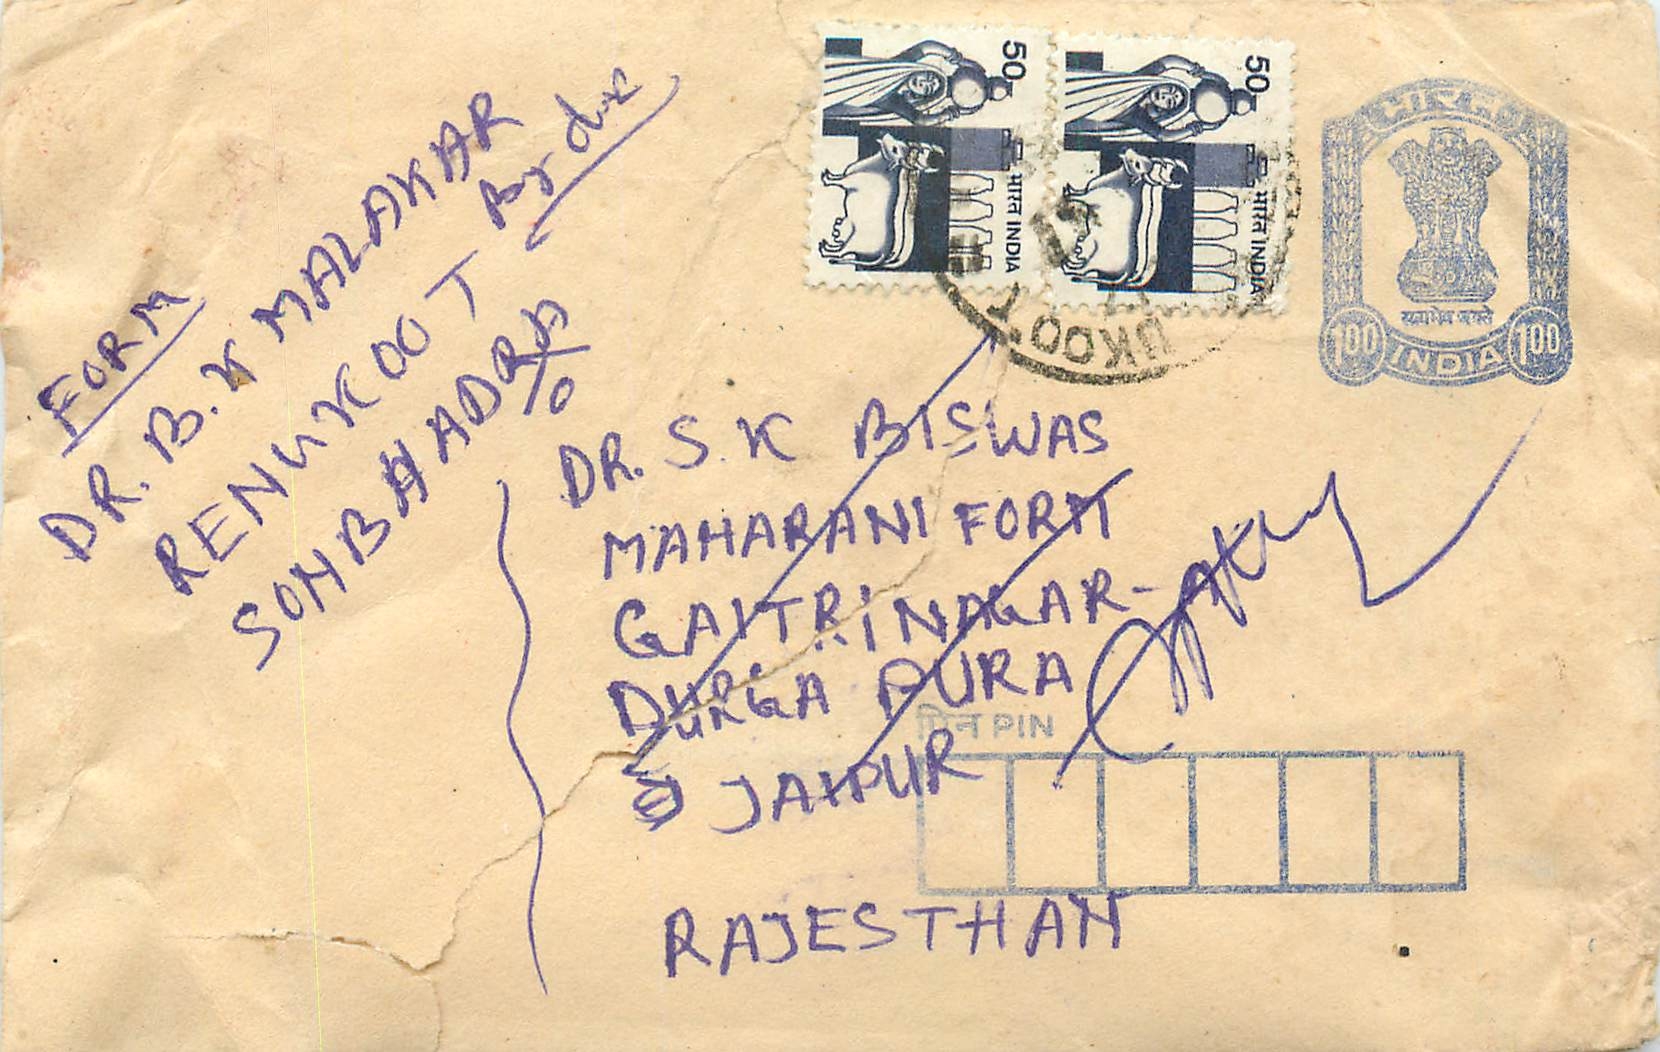 FORM
DR. B. K MALAKAR
RENUKOOT By d.k
SONBHADRA
50
भारत INDIA
50
भारत INDIA
UKOOT
भारत
सत्यमेव जयते
1.00 INDIA 1.00
DR. S. K BISWAS
MAHARANI FORM
GAITRI NAGAR-
DURGA PURA
JAIPUR
पिन PIN
RAJESTHAN